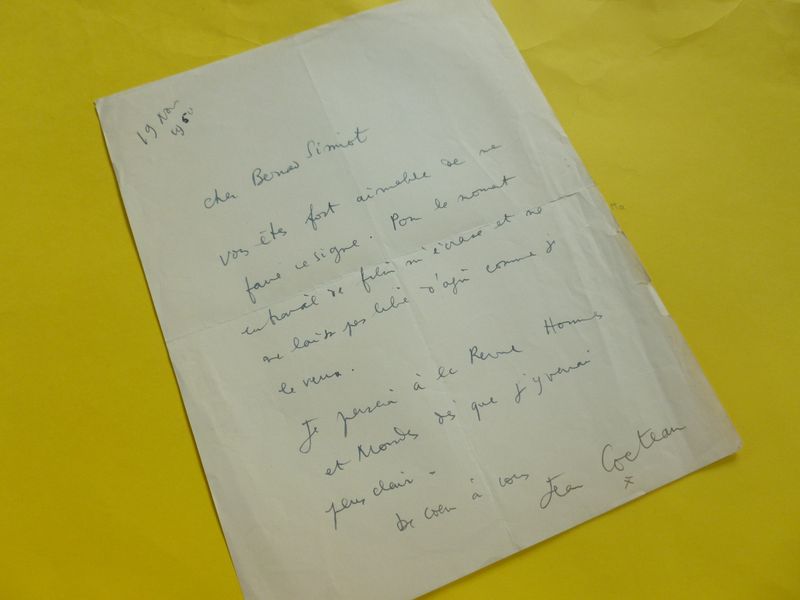 19 Nov
1950
cher Bernard Simiot
vous êtes fort aimable de me
faire ce signe. Pour le moment
un travail de film m'écrase et ne
me laisse pas libre d'agir comme je
le veux.
Je penserai à la Revue Hommes
et Mondes dès que j'y verrai
plus clair -
De cœur à vous
Jean Cocteau